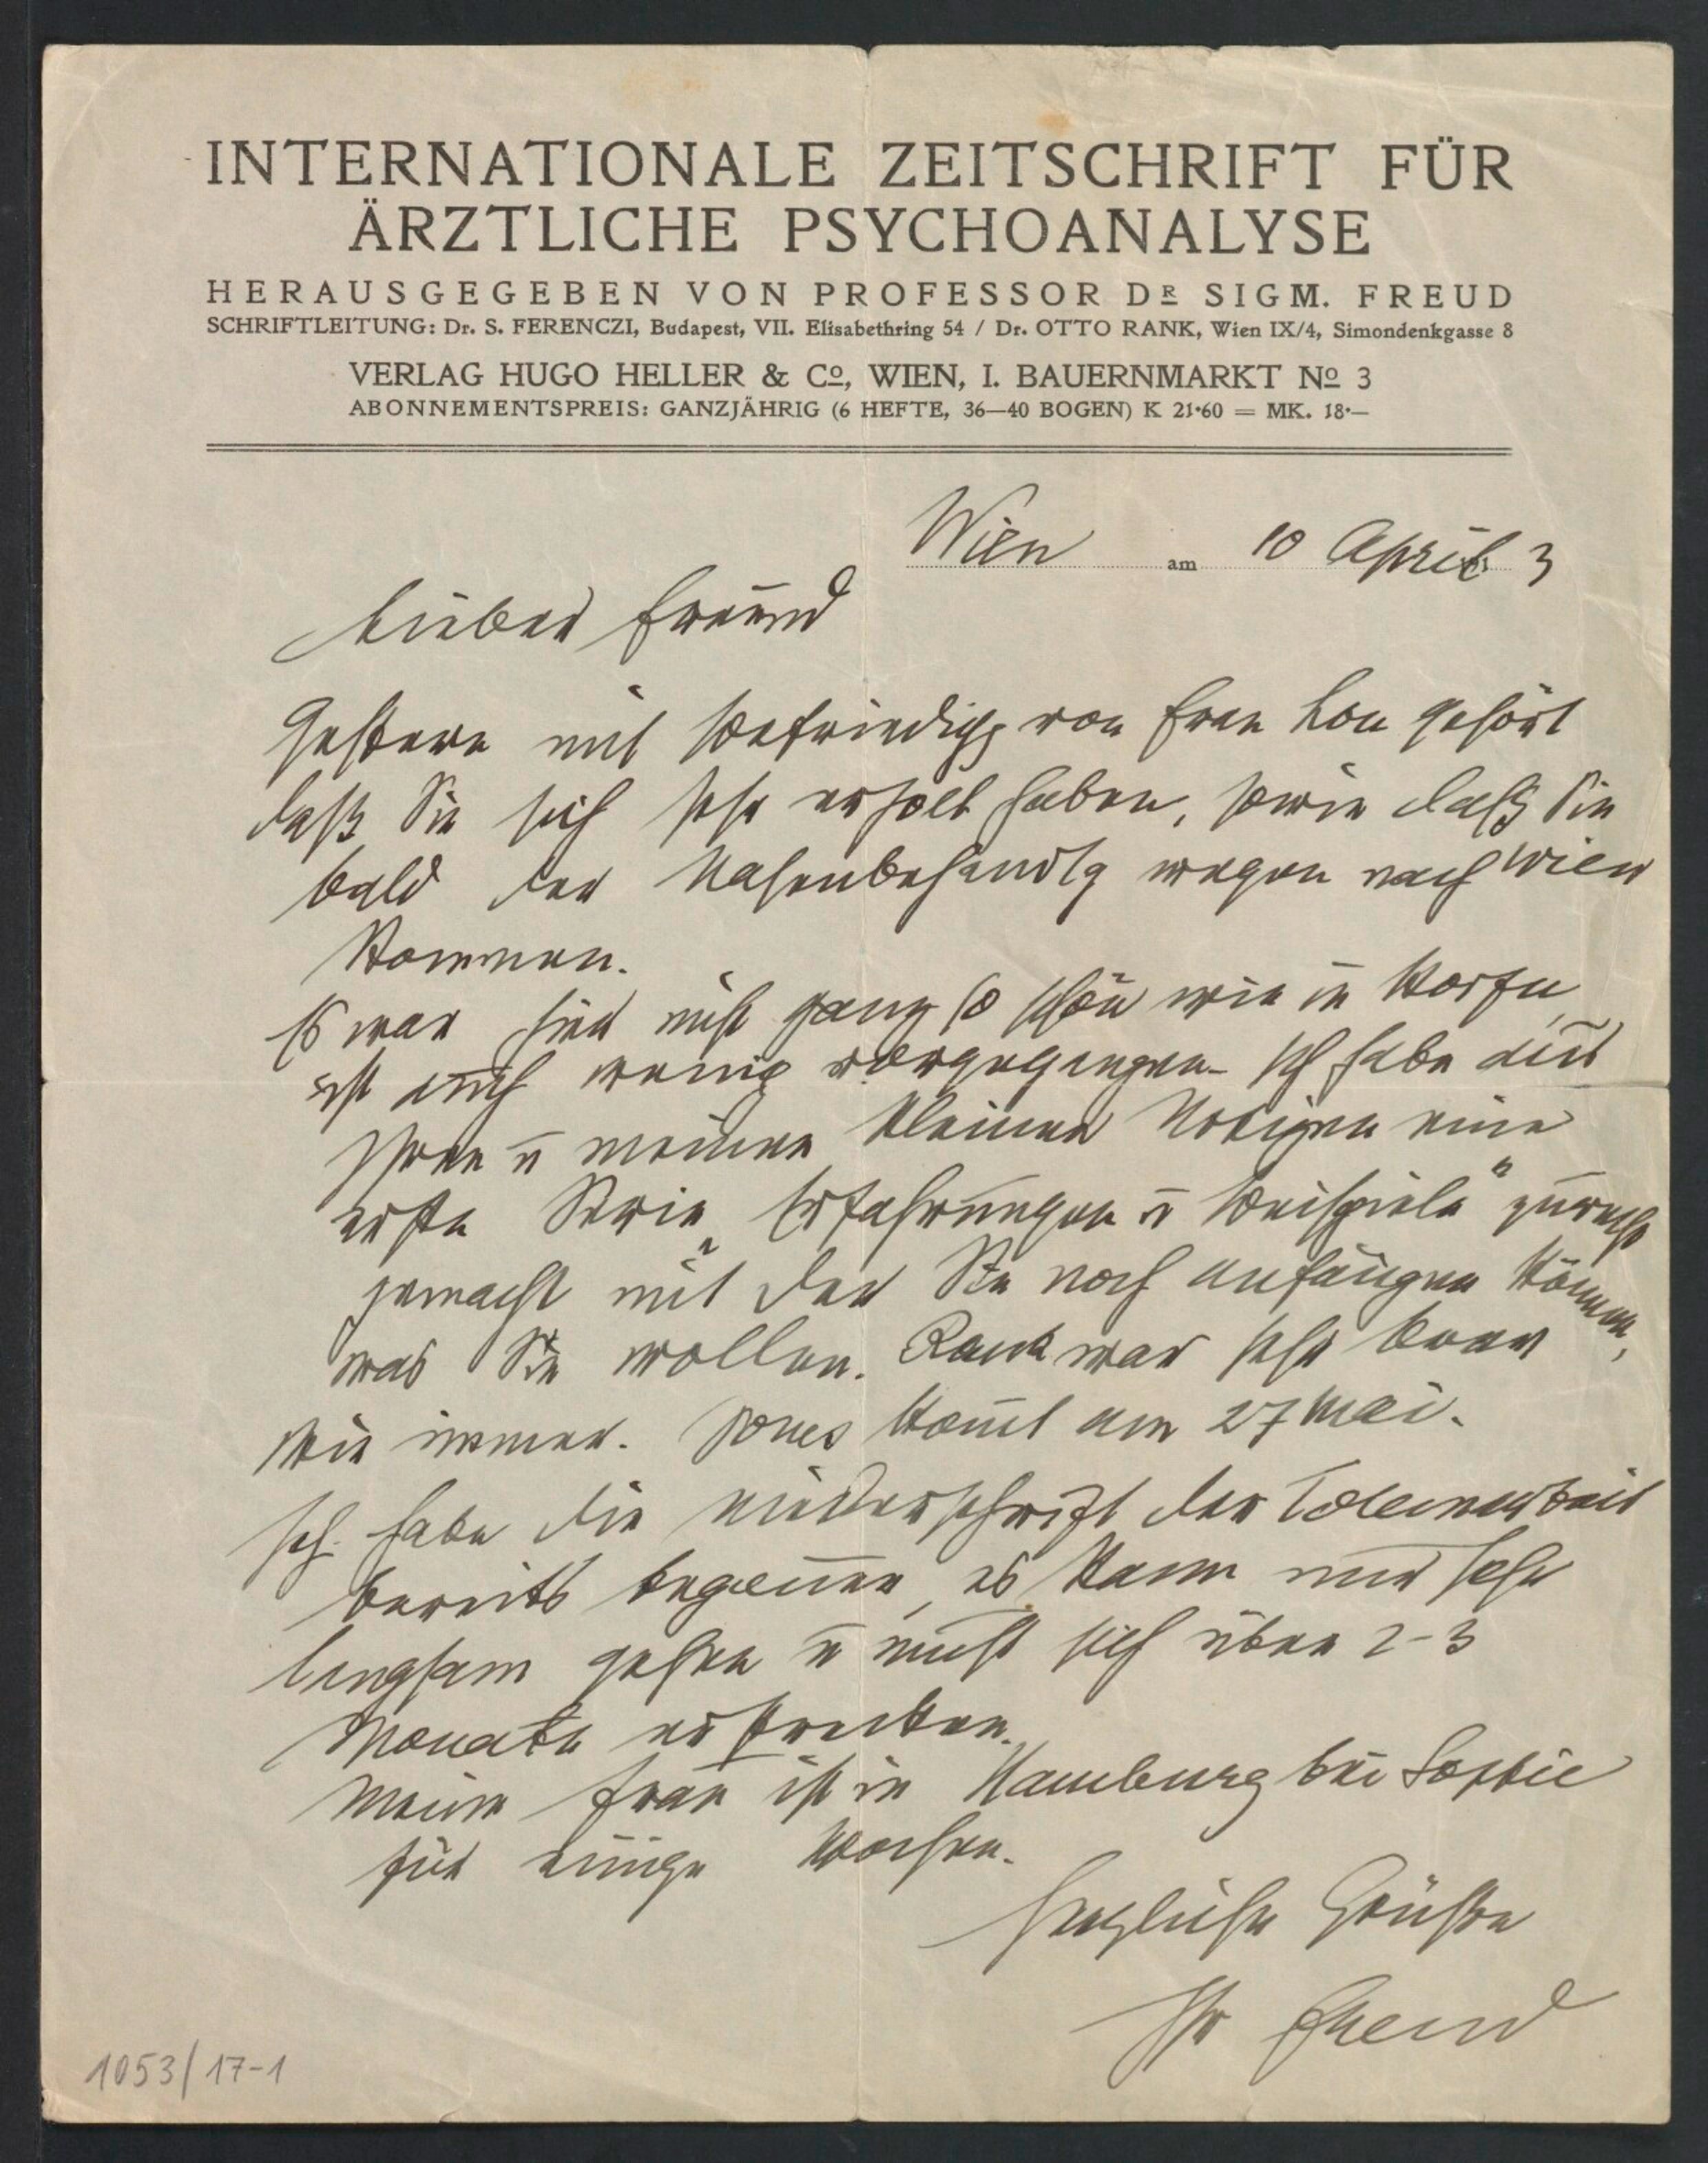 INTERNATIONALE ZEITSCHRIFT FÜR
ÄRZTLICHE PSYCHOANALYSE
HERAUSGEGEBEN VON PROFESSOR DR SIGM. FREUD
SCHRIFTLEITUNG: Dr. S. FERENCZI, Budapest, VII. Elisabethring 54 / Dr. OTTO RANK, Wien IX/4, Simondenkgasse 8
VERLAG HUGO HELLER & Co, WIEN, I. BAUERNMARKT No 3
ABONNEMENTSPREIS: GANZJÄHRIG (6 HEFTE, 36—40 BOGEN) K 21·60 = MK. 18·—
Wien am 10 April 3
Lieber Freund
Gestern mit Befriedigg von Frau Lou gehört
daß Sie sich sehr erholt haben, sowie daß Sie
bald der Nasenbehandlg wegen nach Wien
kommen.
Es war hier nicht ganz so schön wie in Korfu,
ist auch wenig vorgegangen. Ich habe aus
Ihren u meinen kleinen Notizen eine
erste Serie „Erfahrungen u Beispiele“ zurecht
gemacht mit der Sie noch anfangen können,
was Sie wollen. Rank war sehr brav
wie immer. Jones kommt am 27 Mai.
Ich habe die Niederschrift der Totemarbeit
bereits begonnen, es kann nur sehr
langsam gehen u muß sich über 2-3
Monate erstrecken.
Meine Frau ist in Hamburg bei Sophie
für einige Wochen.
Herzliche Grüße
Ihr Freud
1053/17-1